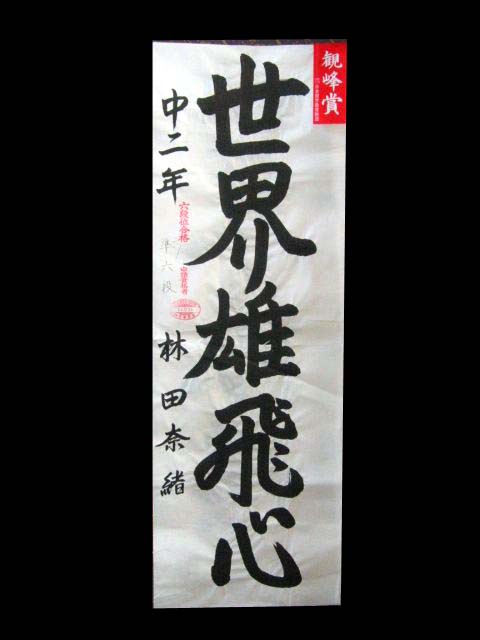 観峰賞
世界雄飛心
中二年
六段位合格
準六段
林田奈緒